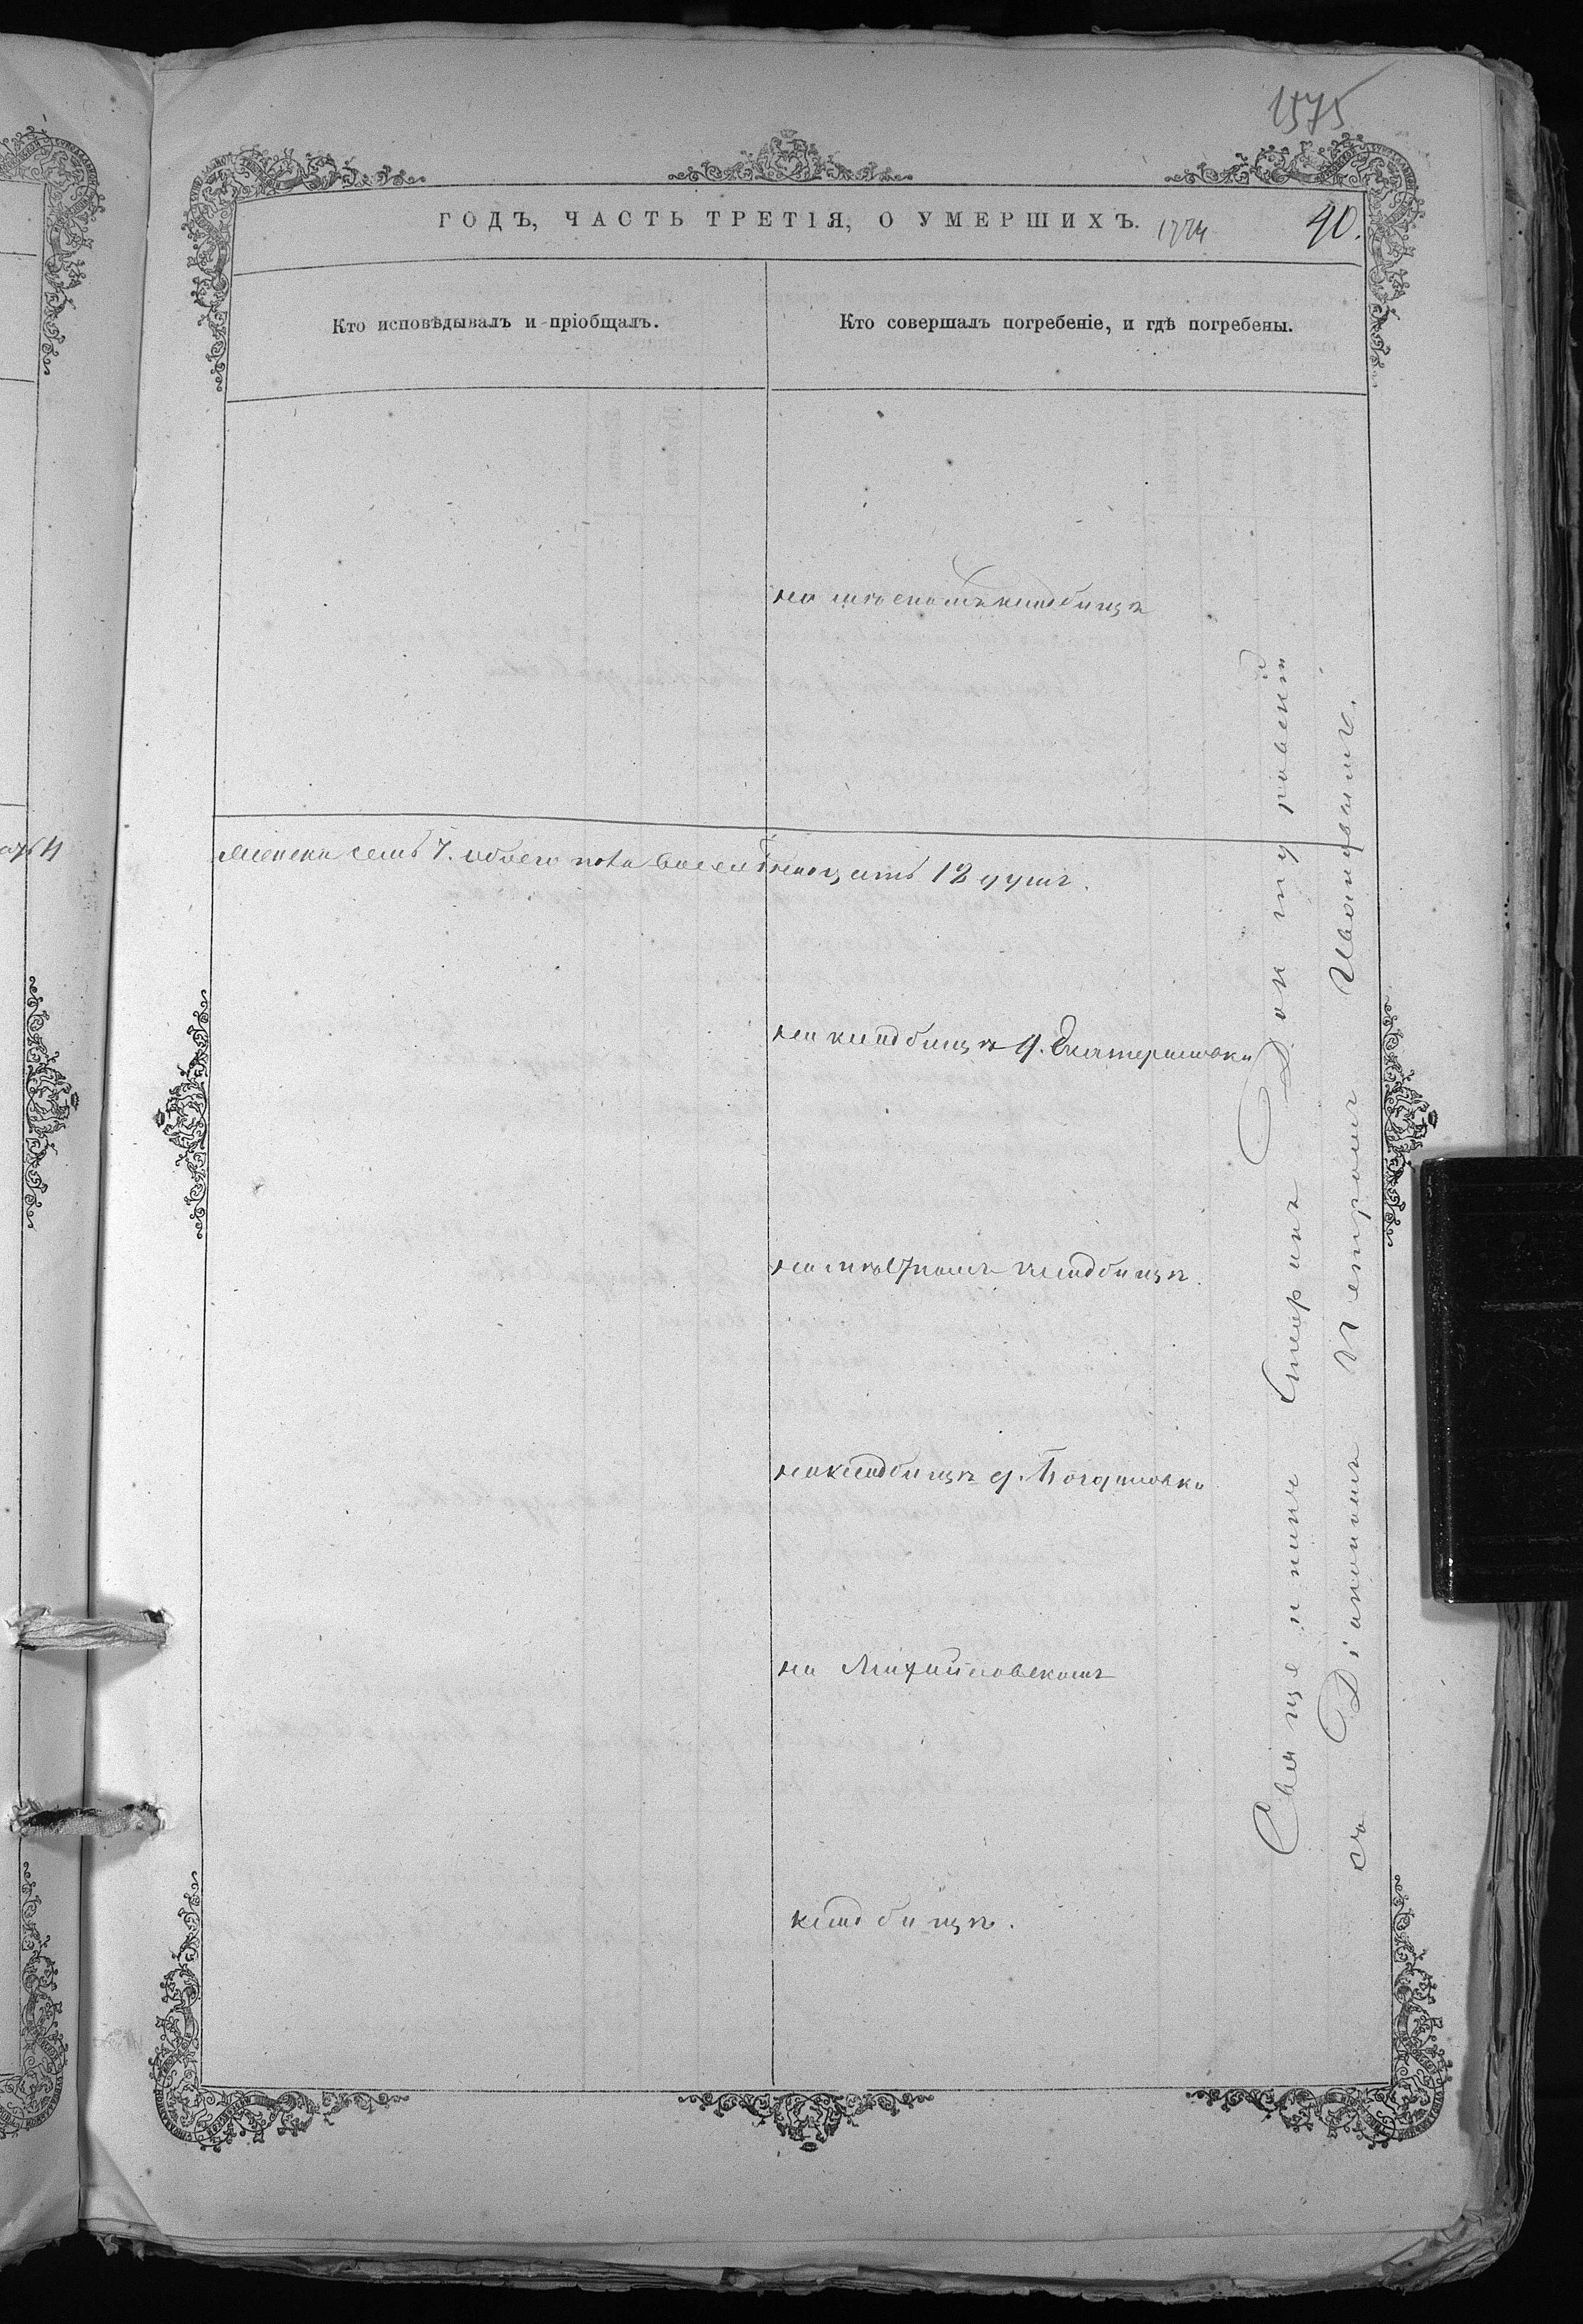 1575
ГОДЪ, ЧАСТЬ ТРЕТІЯ, О УМЕРШИХЪ.
40.
Кто исповѣдывалъ и пріобщалъ.
Кто совершалъ погребеніе, и гдѣ погребены.
кладбищѣ
женска семь 7. обоего пола двенадцать 12 душъ.
на кладбищѣ д. Екатериновки
на кладбищѣ.
на кладбищѣ д. Богдановки
на Михайловскомъ
кладбищѣ.
Священникъ
съ Діакономъ Петромъ Ивановымъ.